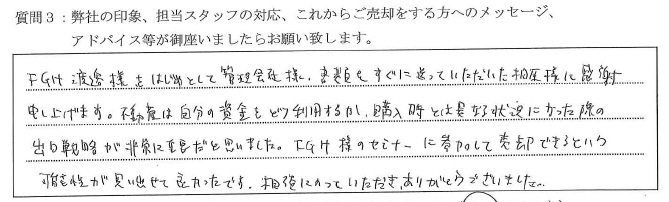 質問3：弊社の印象、担当スタッフの対応、これからご売却をする方へのメッセージ、
アドバイス等が御座いましたらお願い致します。
FGH 渡邊様をはじめとして管理会社様、書類をすぐに送っていただいた相原様に感謝
申し上げます。不動産は自分の資金をどう利用するか、購入時とは異なる状況になった際の
出口戦略が非常に重要だと思いました。FGH様のセミナーに参加して売却できるという
可能性が見い出せて良かったです。相談にのっていただきありがとうございました。